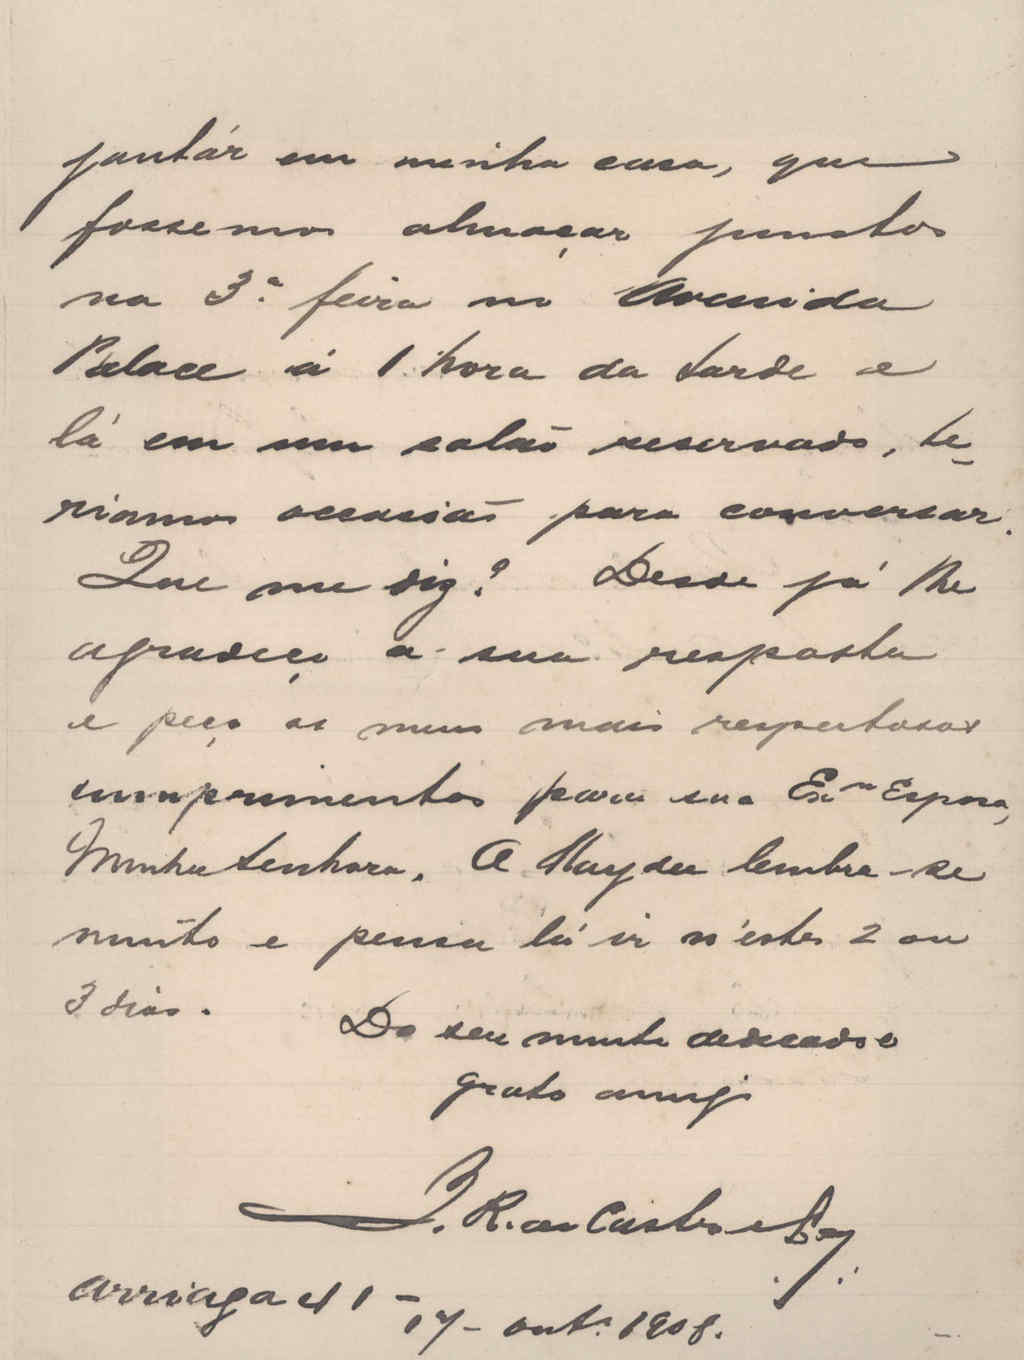 jantár em minha casa, que
fossemos almoçar junctos
na 3.ª feira no Avenida
Palace á 1 hora da tarde e
lá em um salão reservado, te-
riamos occasião para conversar.
Que me diz? Desde já lhe
agradeço a sua resposta
e peço os meus mais respeitosos
cumprimentos para sua Exma Esposa,
Minha Senhora. A Haydee lembra-se
muito e pensa lá ir n'estes 2 ou
3 dias.
Do seu muito dedicado e
grato amigo
J. R. da Castro e
Arriaga
17 - outº 1908.